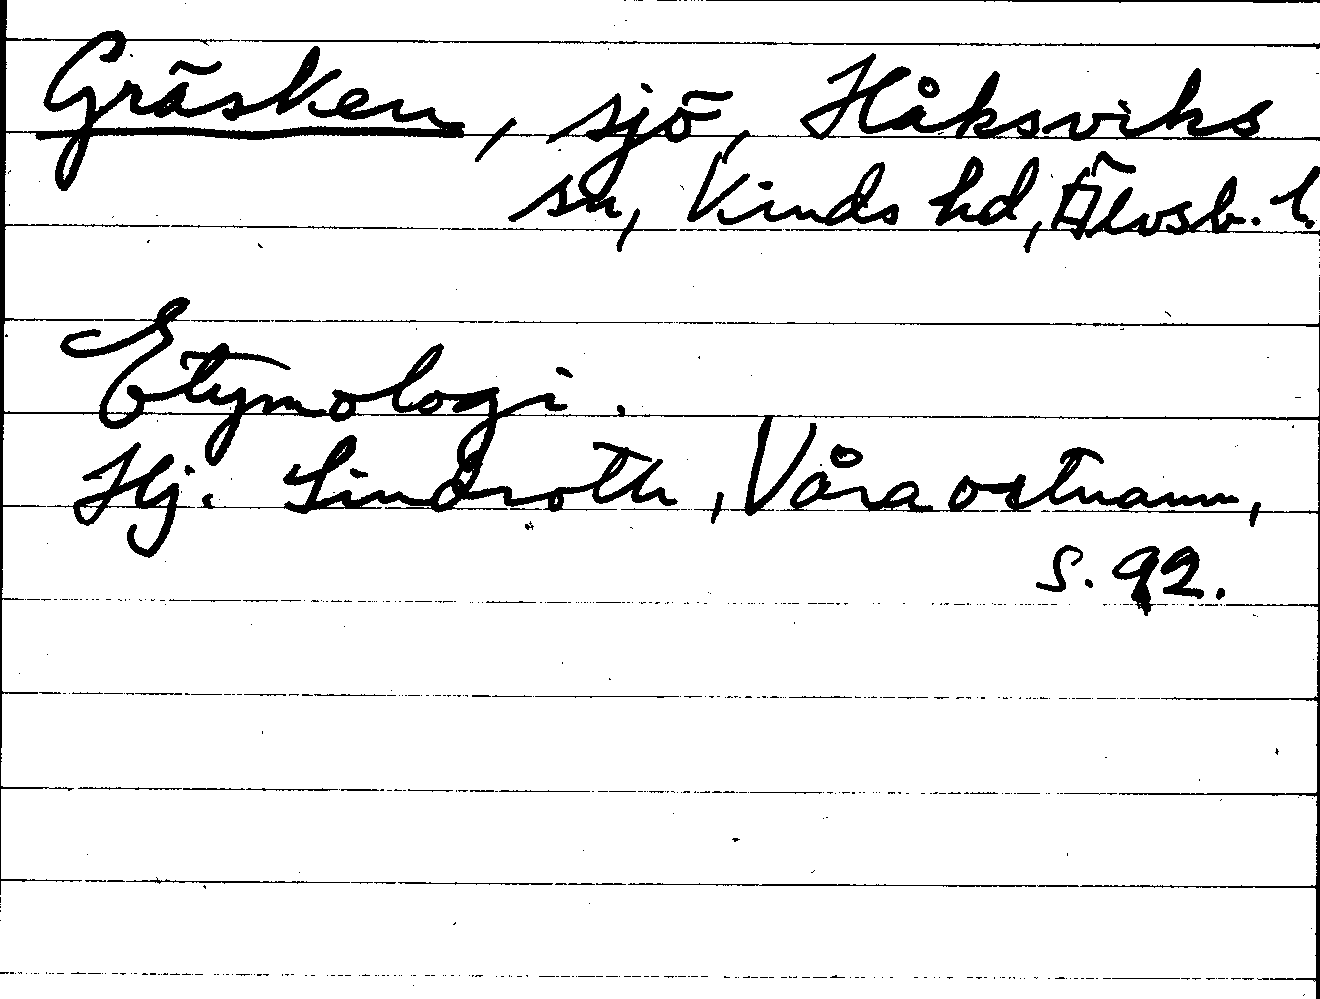 Gräsken, sjö, Håksviks
sn, Kinds hd, Älvsb. l.
Etymologi.
Hj. Lindroth, Våra ortnamn,
s. 92.